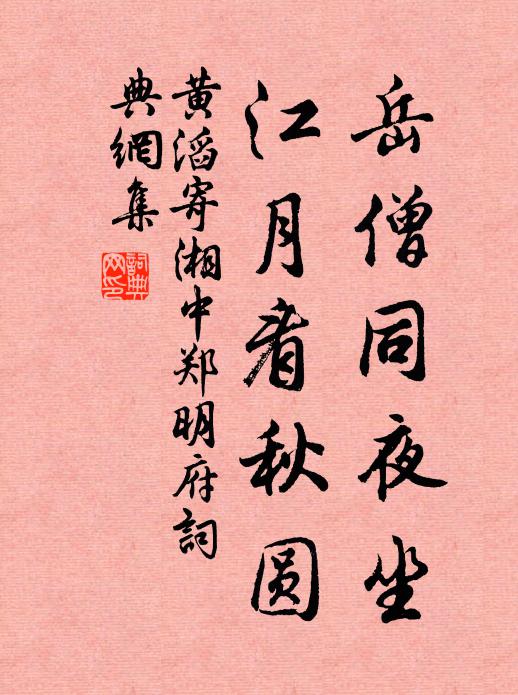 岳僧同夜坐
江月看秋圆
黄滔寄湘中郑明府詞
典網集
詞典
网印